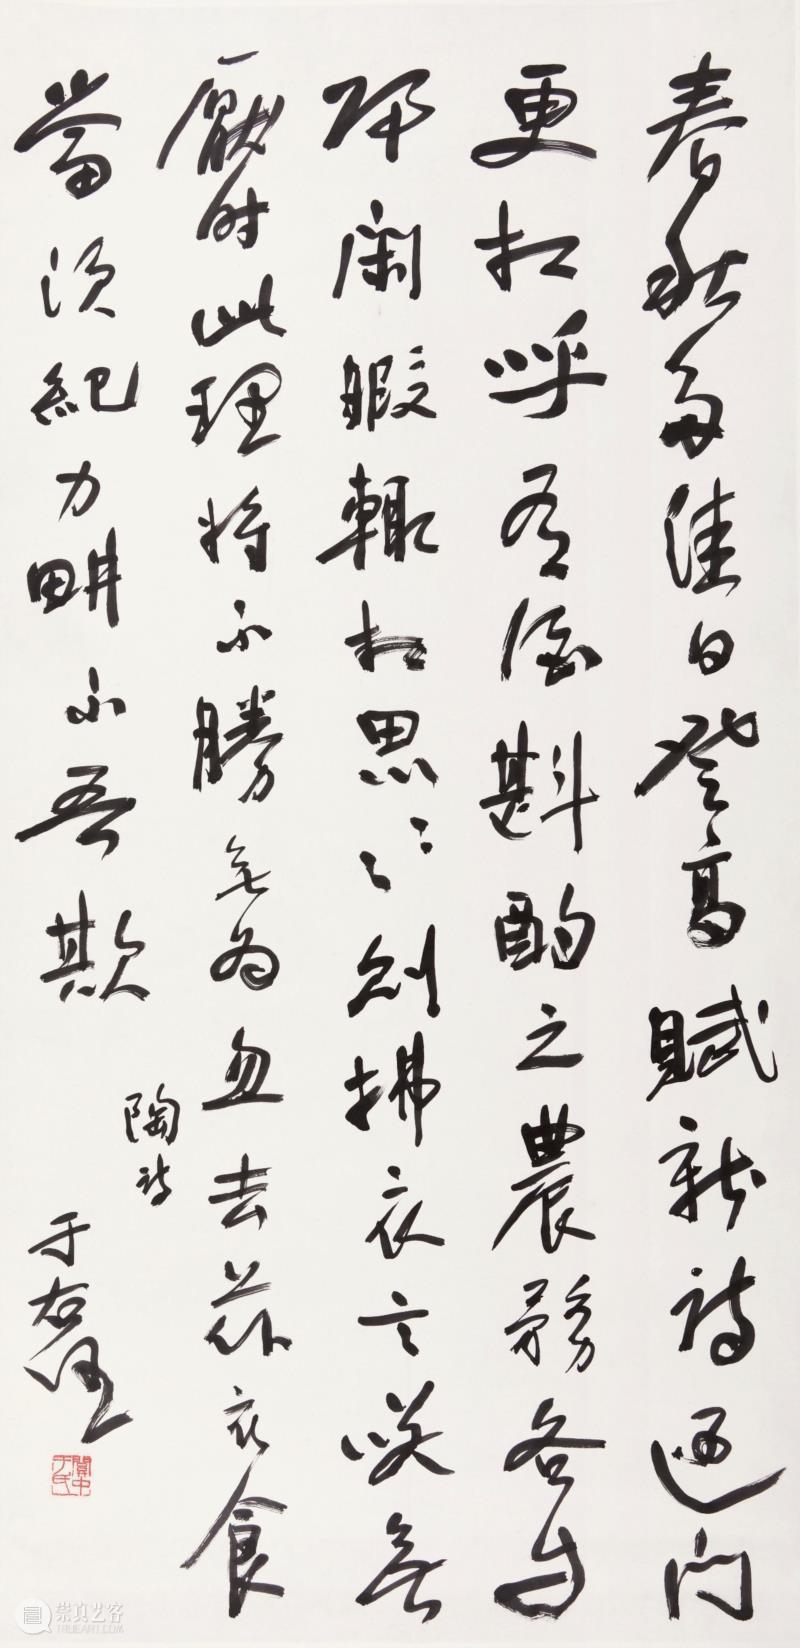 春秋多佳日登高賦新詩過門
更相呼有酒斟酌之農務各自
歸閑暇輒相思〻〻則拂衣言咲無
厭時此理將不勝无為忽去茲衣食
當須紀力畊不吾欺
陶詩
于右任
關中于氏
崇真艺客
TRUEART.COM